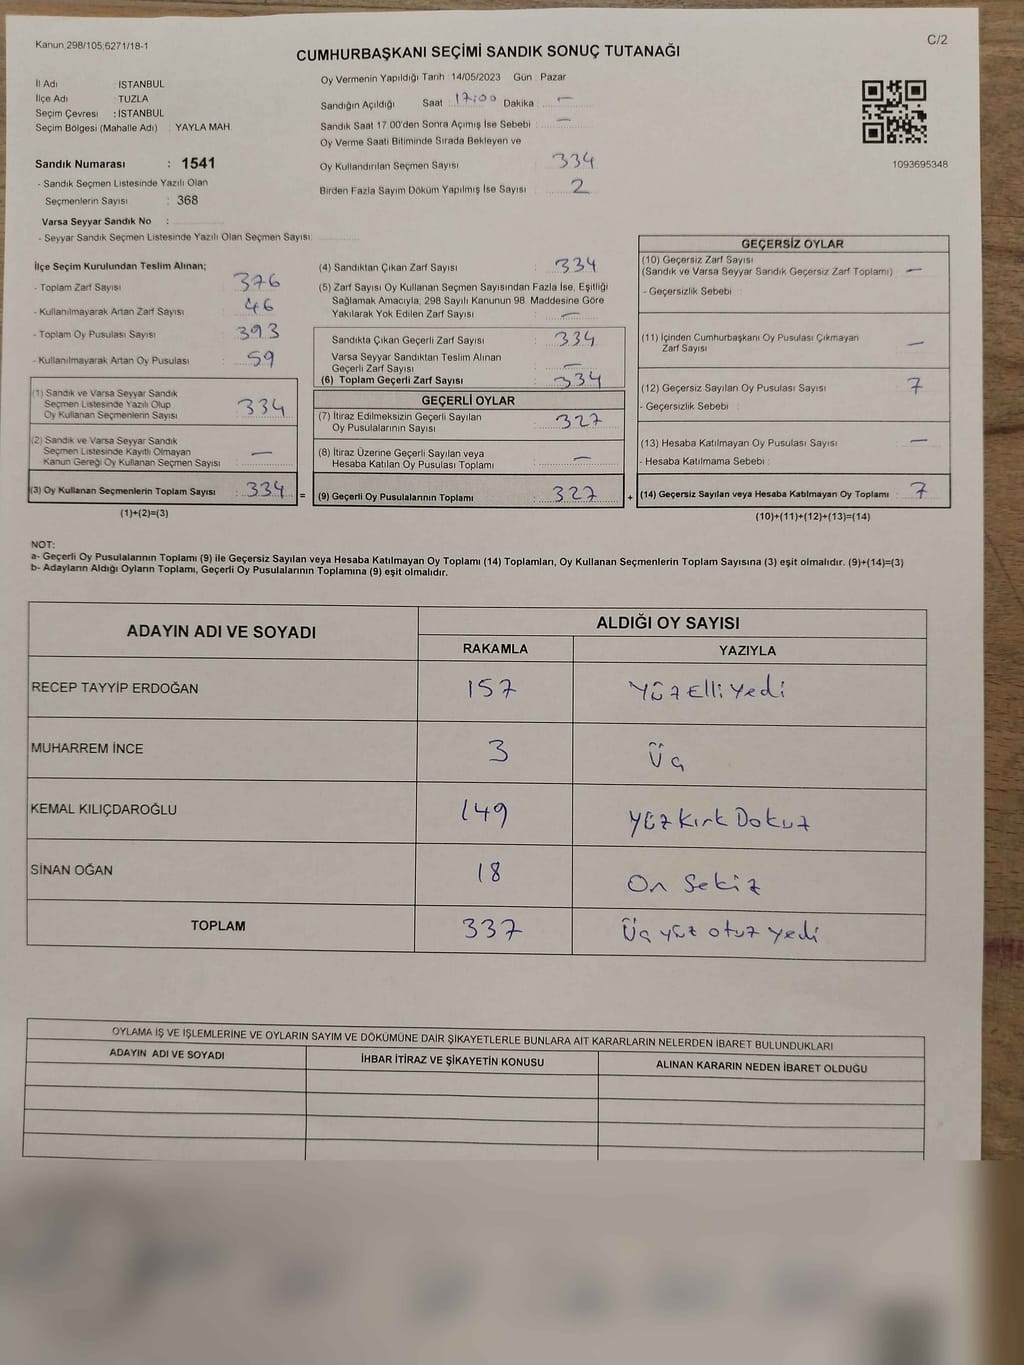 Kanun;298/105;6271/18-1
C/2
CUMHURBAŞKANI SEÇİMİ SANDIK SONUÇ TUTANAĞI
İl Adı : İSTANBUL
İlçe Adı : TUZLA
Seçim Çevresi : İSTANBUL
Seçim Bölgesi (Mahalle Adı) : YAYLA MAH.
Sandık Numarası : 1541
- Sandık Seçmen Listesinde Yazılı Olan
Seçmenlerin Sayısı : 368
Varsa Seyyar Sandık No :
- Seyyar Sandık Seçmen Listesinde Yazılı Olan Seçmen Sayısı:
Oy Vermenin Yapıldığı Tarih : 14/05/2023 Gün : Pazar
Sandığın Açıldığı Saat : 17:00 Dakika : —
Sandık Saat 17.00'den Sonra Açımış İse Sebebi : —
Oy Verme Saati Bitiminde Sırada Bekleyen ve
Oy Kullandırılan Seçmen Sayısı : 334
Birden Fazla Sayım Döküm Yapılmış İse Sayısı : 2
1093695348
İlçe Seçim Kurulundan Teslim Alınan;
- Toplam Zarf Sayısı : 376
- Kullanılmayarak Artan Zarf Sayısı : 46
- Toplam Oy Pusulası Sayısı : 393
- Kullanılmayarak Artan Oy Pusulası : 59
(1) Sandık ve Varsa Seyyar Sandık
Seçmen Listesinde Yazılı Olup
Oy Kullanan Seçmenlerin Sayısı : 334
(2) Sandık ve Varsa Seyyar Sandık
Seçmen Listesinde Kayıtlı Olmayan
Kanun Gereği Oy Kullanan Seçmen Sayısı : —
(3) Oy Kullanan Seçmenlerin Toplam Sayısı : 334 =
(1)+(2)=(3)
(4) Sandıktan Çıkan Zarf Sayısı : 334
(5) Zarf Sayısı Oy Kullanan Seçmen Sayısından Fazla İse, Eşitliği
Sağlamak Amacıyla, 298 Sayılı Kanunun 98. Maddesine Göre
Yakılarak Yok Edilen Zarf Sayısı : —
Sandıkta Çıkan Geçerli Zarf Sayısı : 334
Varsa Seyyar Sandıktan Teslim Alınan
Geçerli Zarf Sayısı : —
(6) Toplam Geçerli Zarf Sayısı : 334
GEÇERLİ OYLAR
(7) İtiraz Edilmeksizin Geçerli Sayılan
Oy Pusulalarının Sayısı : 327
(8) İtiraz Üzerine Geçerli Sayılan veya
Hesaba Katılan Oy Pusulası Toplamı : —
(9) Geçerli Oy Pusulalarının Toplamı : 327 +
GEÇERSİZ OYLAR
(10) Geçersiz Zarf Sayısı
(Sandık ve Varsa Seyyar Sandık Geçersiz Zarf Toplamı) : —
- Geçersizlik Sebebi :
(11) İçinden Cumhurbaşkanı Oy Pusulası Çıkmayan
Zarf Sayısı : —
(12) Geçersiz Sayılan Oy Pusulası Sayısı : 7
- Geçersizlik Sebebi :
(13) Hesaba Katılmayan Oy Pusulası Sayısı : —
- Hesaba Katılmama Sebebi :
(14) Geçersiz Sayılan veya Hesaba Katılmayan Oy Toplamı : 7
(10)+(11)+(12)+(13)=(14)
NOT:
a- Geçerli Oy Pusulalarının Toplamı (9) ile Geçersiz Sayılan veya Hesaba Katılmayan Oy Toplamı (14) Toplamları, Oy Kullanan Seçmenlerin Toplam Sayısına (3) eşit olmalıdır. (9)+(14)=(3)
b- Adayların Aldığı Oyların Toplamı, Geçerli Oy Pusulalarının Toplamına (9) eşit olmalıdır.
ADAYIN ADI VE SOYADI ALDIĞI OY SAYISI
RAKAMLA YAZIYLA
RECEP TAYYİP ERDOĞAN 157 Yüz Elli Yedi
MUHARREM İNCE 3 Üç
KEMAL KILIÇDAROĞLU 149 Yüz Kırk Dokuz
SİNAN OĞAN 18 On Sekiz
TOPLAM 337 Üç yüz otuz yedi
OYLAMA İŞ VE İŞLEMLERİNE VE OYLARIN SAYIM VE DÖKÜMÜNE DAİR ŞİKAYETLERLE BUNLARA AİT KARARLARIN NELERDEN İBARET BULUNDUKLARI
ADAYIN ADI VE SOYADI İHBAR İTİRAZ VE ŞİKAYETİN KONUSU ALINAN KARARIN NEDEN İBARET OLDUĞU